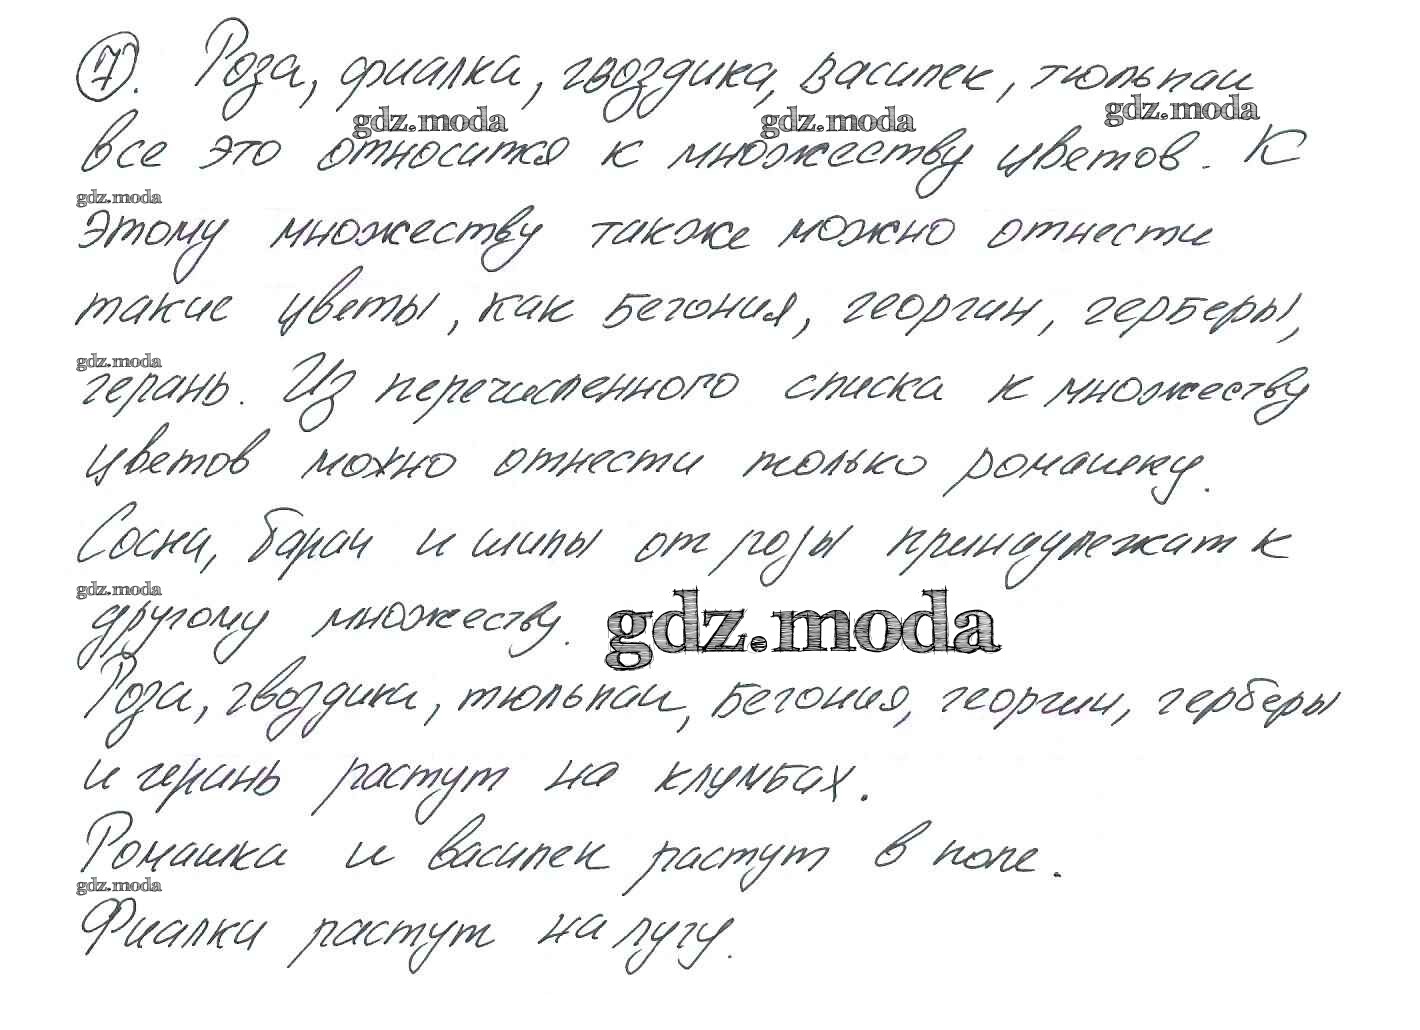 7. Роза, фиалка, гвоздика, василек, тюльпан
gdz.moda gdz.moda gdz.moda
все это относится к множеству цветов. К
gdz.moda
этому множеству также можно отнести
такие цветы, как бегония, георгин, герберы,
gdz.moda
герань. Из перечисленного списка к множеству
цветов можно отнести только ромашку.
Сосна, баран и шипы от розы принадлежат к
gdz.moda
другому множеству. gdz.moda
Роза, гвоздика, тюльпан, бегония, георгин, герберы
и герань растут на клумбах.
Ромашка и василек растут в поле.
gdz.moda
Фиалки растут на лугу.